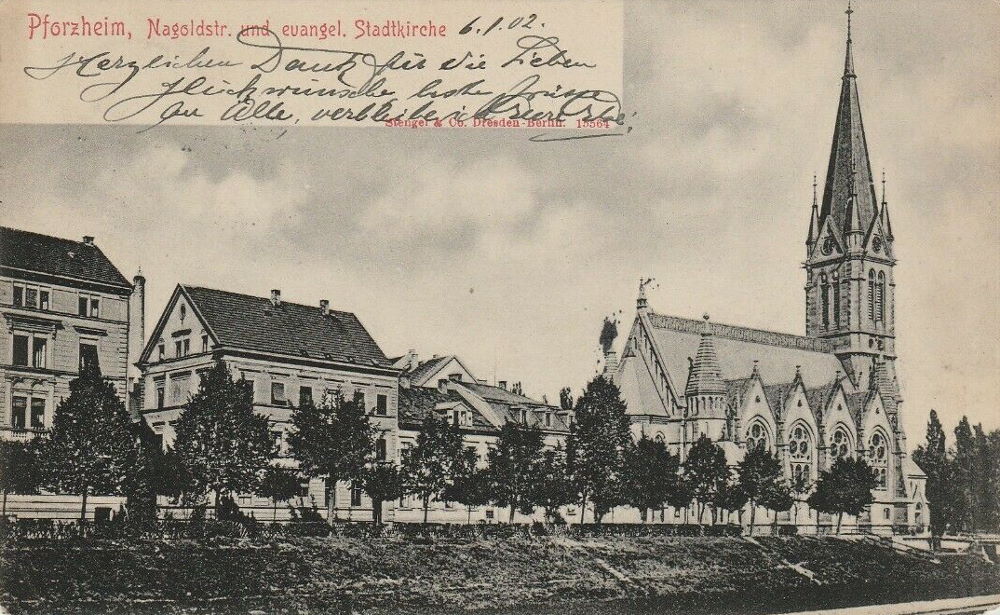 Pforzheim, Nagoldstr. und evangel. Stadtkirche 6.1.02.
Herzlichen Dank für die lieben
Glückwünsche, beste Grüsse
an Alle, verbleibe ich
Stengel & Co. Dresden-Berlin. 15564